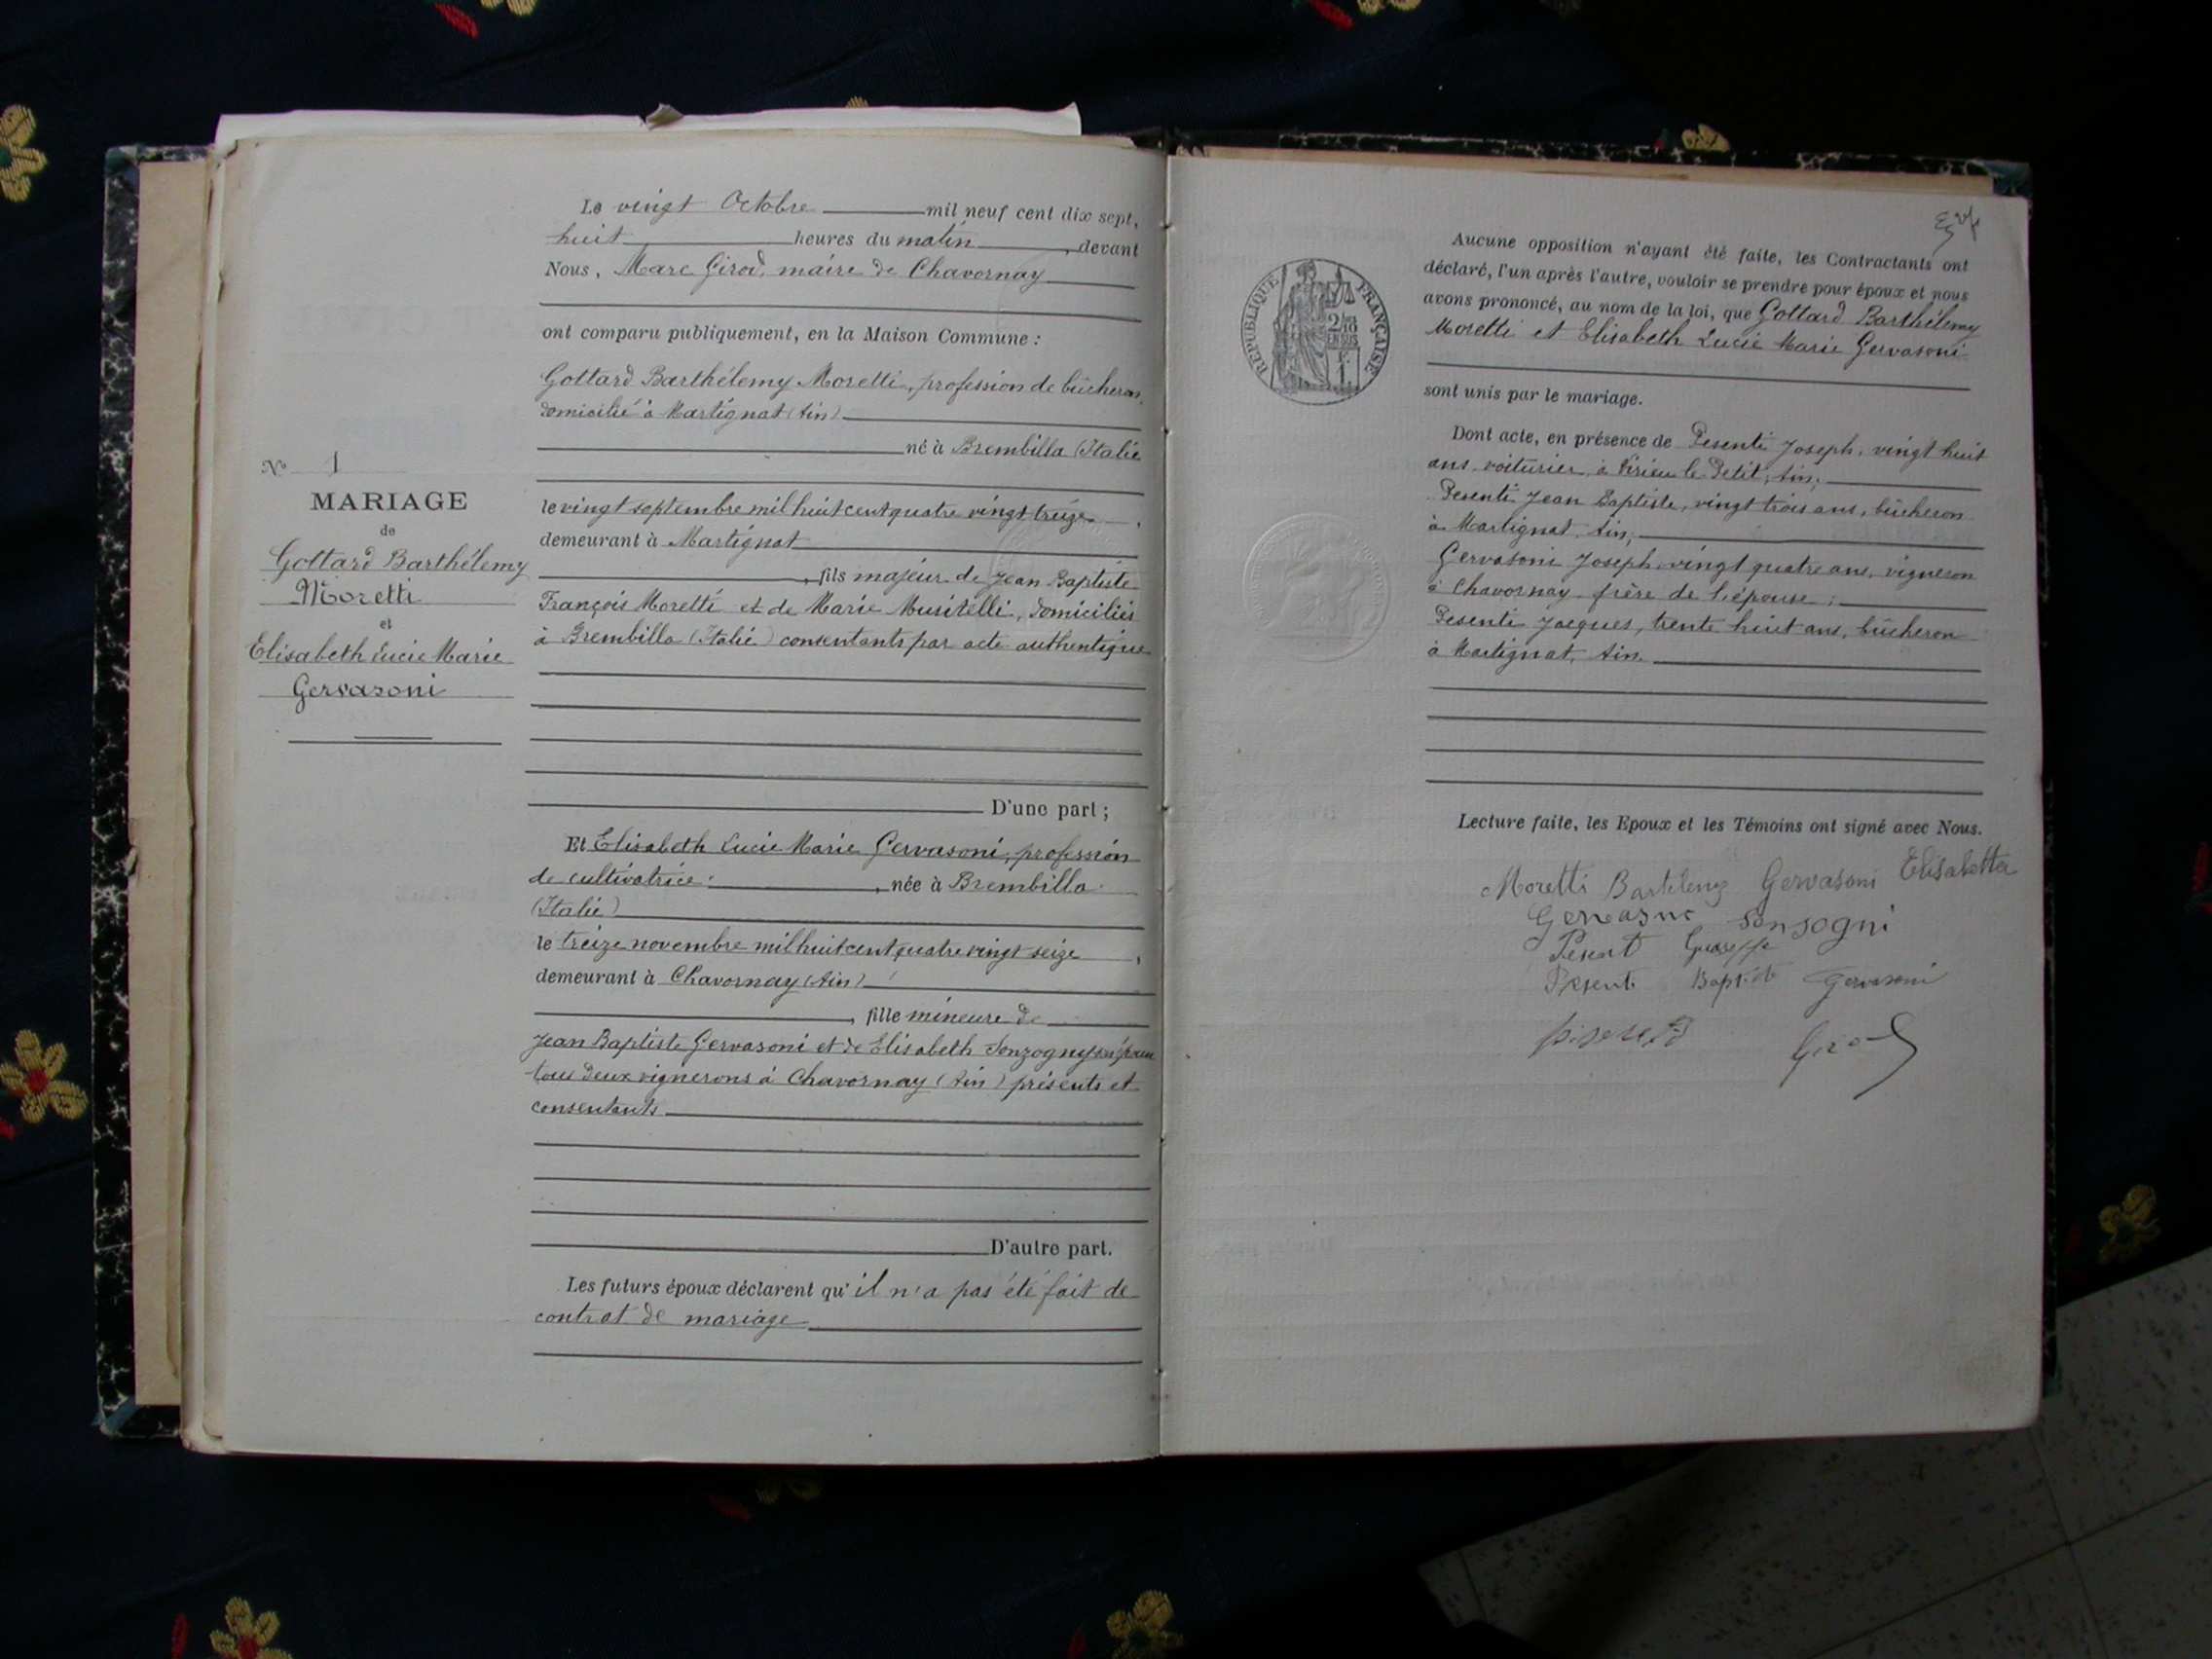 N° 1
MARIAGE
de
Gottard Barthélemy
Moretti
et
Elisabeth Lucie Marie
Gervasoni
Le vingt Octobre mil neuf cent dix sept,
huit heures du matin, devant
Nous, Marc Girod, maire de Chavornay
ont comparu publiquement, en la Maison Commune :
Gottard Barthélemy Moretti, profession de bûcheron,
domicilié à Martignat (Ain)
né à Brembilla (Italie
le vingt septembre mil huit cent quatre vingt treize,
demeurant à Martignat
, fils majeur de Jean Baptiste
François Moretti et de Marie Musitelli, domiciliés
à Brembilla (Italie) consentants par acte authentique
D'une part ;
Et Elisabeth Lucie Marie Gervasoni, profession
de cultivatrice, née à Brembilla
(Italie)
le treize novembre mil huit cent quatre vingt seize,
demeurant à Chavornay (Ain)
, fille mineure de
Jean Baptiste Gervasoni et de Elisabeth Sonzogny
tous deux vignerons à Chavornay (Ain) présents et
consentants
D'autre part.
Les futurs époux déclarent qu'il n'a pas été fait de
contrat de mariage
Aucune opposition n'ayant été faite, les Contractants ont
déclaré, l'un après l'autre, vouloir se prendre pour époux et nous
avons prononcé, au nom de la loi, que Gottard Barthélemy
Moretti et Elisabeth Lucie Marie Gervasoni
sont unis par le mariage.
RÉPUBLIQUE FRANÇAISE
2/10
EN SUS
1F
Dont acte, en présence de Pesenti Joseph, vingt huit
ans, voiturier à Virieu le Petit, Ain;
Pesenti Jean Baptiste, vingt trois ans, bûcheron
à Martignat, Ain;
Gervasoni Joseph, vingt quatre ans, vigneron
à Chavornay, frère de l'épouse;
Pesenti Jacques, trente huit ans, bûcheron
à Martignat, Ain.
Lecture faite, les Epoux et les Témoins ont signé avec Nous.
Moretti Gervasoni Elisabetta
Sonsogni
Gervasoni
Girod